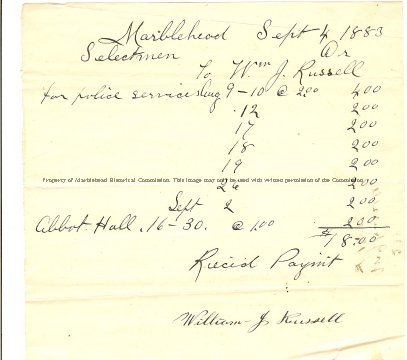 Marblehead Sept 4 1883
Selectmen Dr
To Wm J. Russell
for police services Aug 9-10 @ 2.00 4.00
12 2.00
17 2.00
18 2.00
19 2.00
Property of Marblehead Historical Commission. This image may not be used with written permission of the Commission.
26 2.00
Sept 2 2.00
Abbot Hall. 16-30. @ 1.00 2.00
$18.00
Recid Paymt
William J Russell